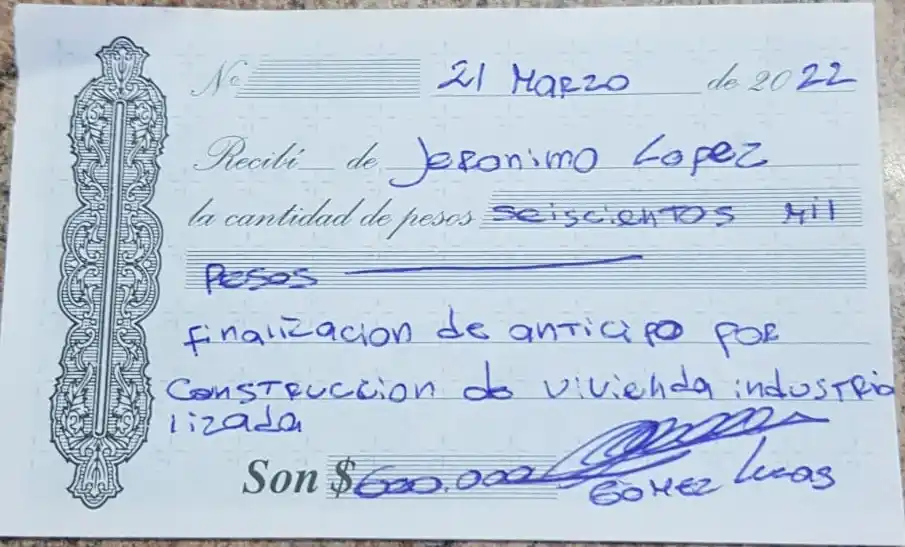 Nº 21 Marzo de 2022
Recibí de Jeronimo Lopez
la cantidad de pesos seiscientos mil
Pesos
finalizacion de anticipo por
Construccion de vivienda industria
lizada
Son $ 600.000
Gomez Lucas